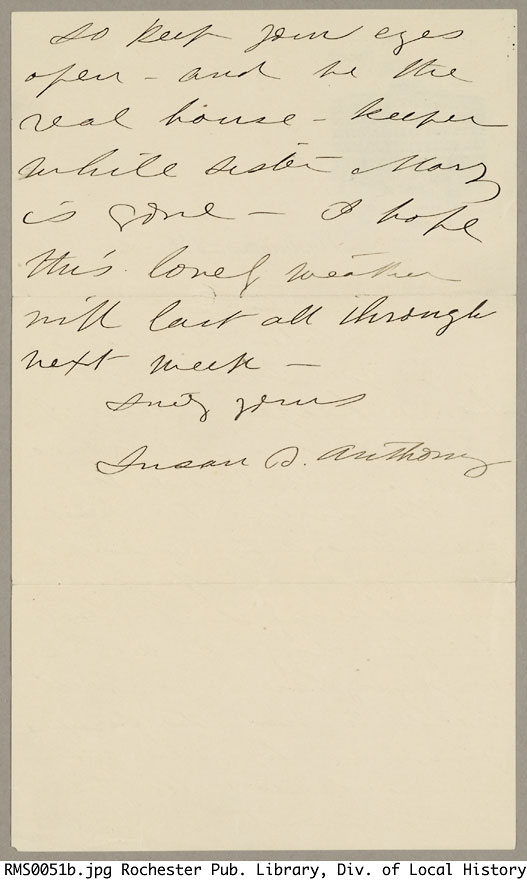 So keep your eyes
open - and be the
real house-keeper
while sister Mary
is gone - I hope
this lovely weather
will last all through
next week -
Sincly yours
Susan B. Anthony
RMS0051b.jpg Rochester Pub. Library, Div. of Local History